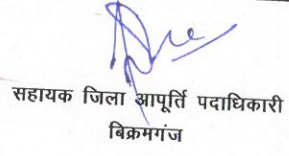 सहायक जिला आपूर्ति पदाधिकारी
बिक्रमगंज